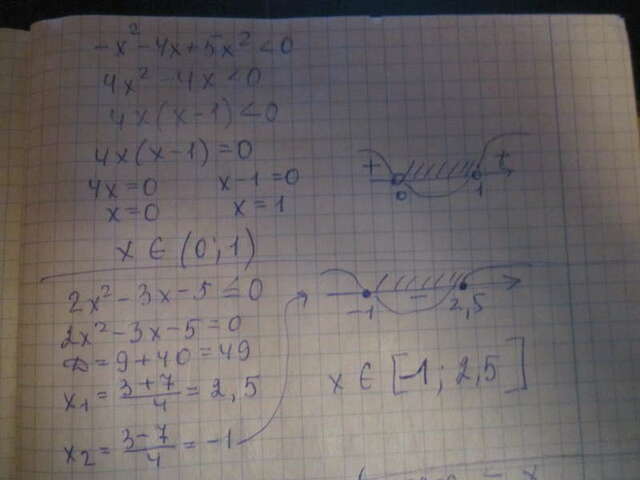 -x² - 4x + 5x² < 0
4x² - 4x < 0
4x(x-1) < 0
4x(x-1) = 0
4x = 0 x-1 = 0
x = 0 x = 1
+ 0 1 +
x ∈ (0; 1)
2x² - 3x - 5 ≤ 0
2x² - 3x - 5 = 0
D = 9 + 40 = 49
x₁ = (3+7)/4 = 2,5
x₂ = (3-7)/4 = -1
-1 - 2,5
x ∈ [-1; 2,5]